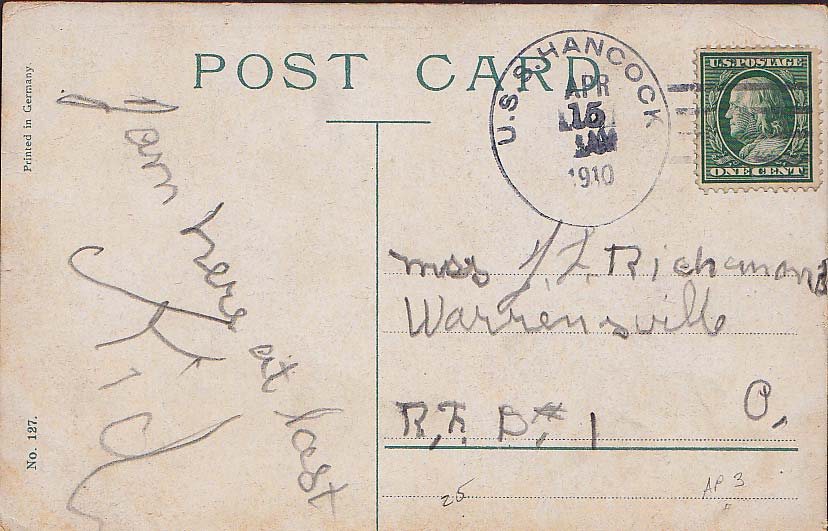 POST CARD
Printed in Germany.
No. 127.
U.S.S. HANCOCK
APR
15
AM
1910
U.S. POSTAGE
ONE CENT
I am here at last
Kid
Richmond
Warrensville
R.F.D.# 1 O.
25
AP 3